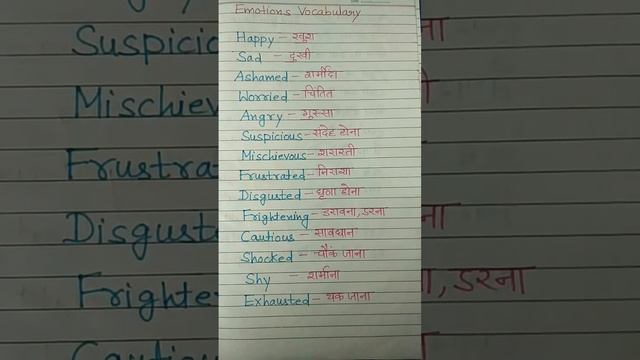 Emotions Vocabulary
Happy – खुश
Sad – दुखी
Ashamed – शर्मीदा
Worried – चिंतित
Angry – गुस्सा
Suspicious – संदेह होना
Mischievous – शरारती
Frustrated – निराशा
Disgusted – घृणा होना
Frightening – डरावना, डरना
Cautious – सावधान
Shocked – चौंक जाना
Shy – शर्माना
Exhausted – थक जाना